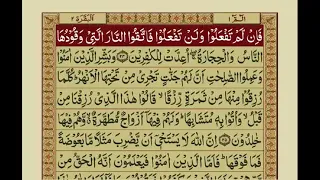 الٓمّٓ ١ البقرة ٢
فَاِنْ لَّمْ تَفْعَلُوْا وَلَنْ تَفْعَلُوْا فَاتَّقُوا النَّارَ الَّتِيْ وَقُوْدُهَا
النَّاسُ وَالْحِجَارَةُ ۖ اُعِدَّتْ لِلْكٰفِرِيْنَ ﴿٢٤﴾ وَبَشِّرِ الَّذِيْنَ اٰمَنُوْا
وَعَمِلُوا الصّٰلِحٰتِ اَنَّ لَهُمْ جَنّٰتٍ تَجْرِيْ مِنْ تَحْتِهَا الْاَنْهٰرُ ؕ كُلَّمَا
رُزِقُوْا مِنْهَا مِنْ ثَمَرَةٍ رِّزْقًا ۙ قَالُوْا هٰذَا الَّذِيْ رُزِقْنَا مِنْ
قَبْلُ ۙ وَاُتُوْا بِهٖ مُتَشَابِهًا ؕ وَلَهُمْ فِيْهَاۤ اَزْوَاجٌ مُّطَهَّرَةٌ ۙ وَّهُمْ فِيْهَا
خٰلِدُوْنَ ﴿٢٥﴾ اِنَّ اللّٰهَ لَا يَسْتَحْيٖۤ اَنْ يَّضْرِبَ مَثَلًا مَّا بَعُوْضَةً
فَمَا فَوْقَهَا ؕ فَاَمَّا الَّذِيْنَ اٰمَنُوْا فَيَعْلَمُوْنَ اَنَّهُ الْحَقُّ مِنْ